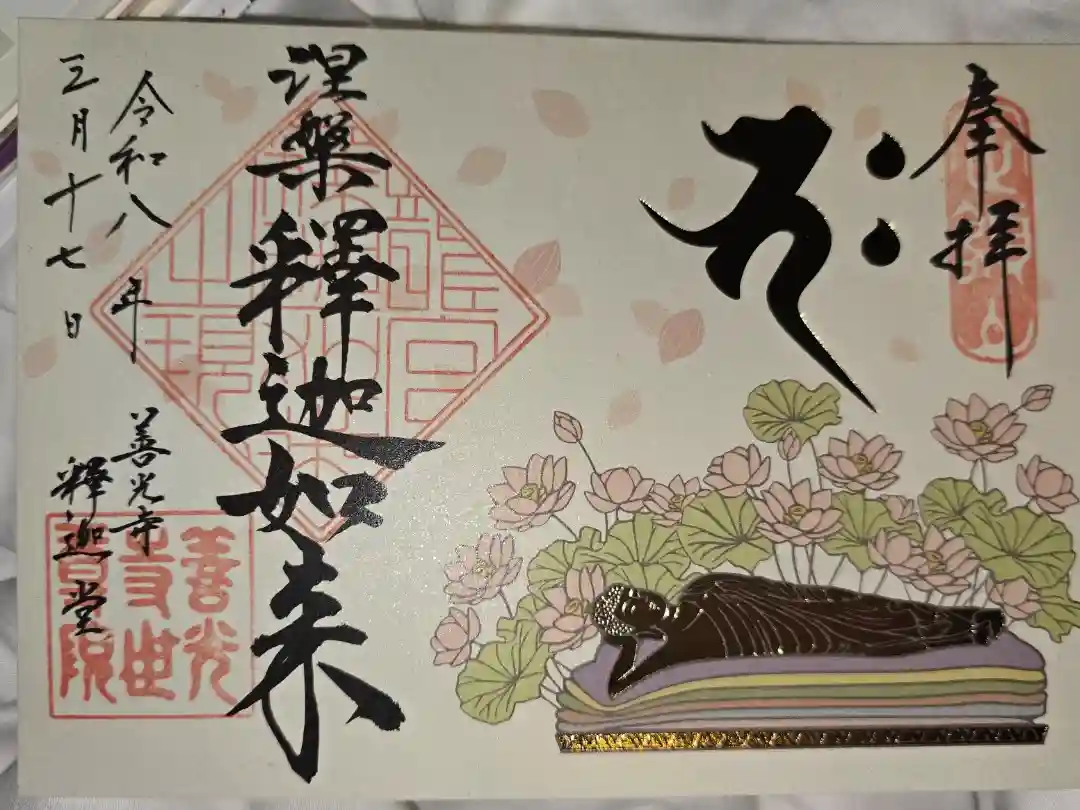 奉拝
涅槃釋迦如来
令和八年
三月十七日
善光寺
釋迦堂
善光
寺世
尊院